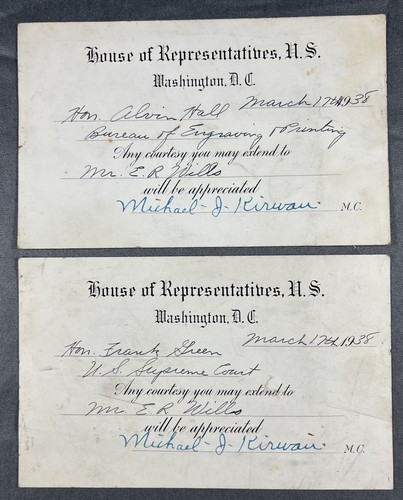 House of Representatives, U. S.
Washington, D. C.
March 17th 1938
Hon. Alvin Hall
Bureau of Engraving & Printing
Any courtesy you may extend to
Mr. E. R Wills
will be appreciated
Michael J. Kirwan M.C.
House of Representatives, U. S.
Washington, D. C.
March 17th 1938
Hon. Frank Green
U. S. Supreme Court
Any courtesy you may extend to
Mr. E. R Wills
will be appreciated
Michael J. Kirwan M.C.